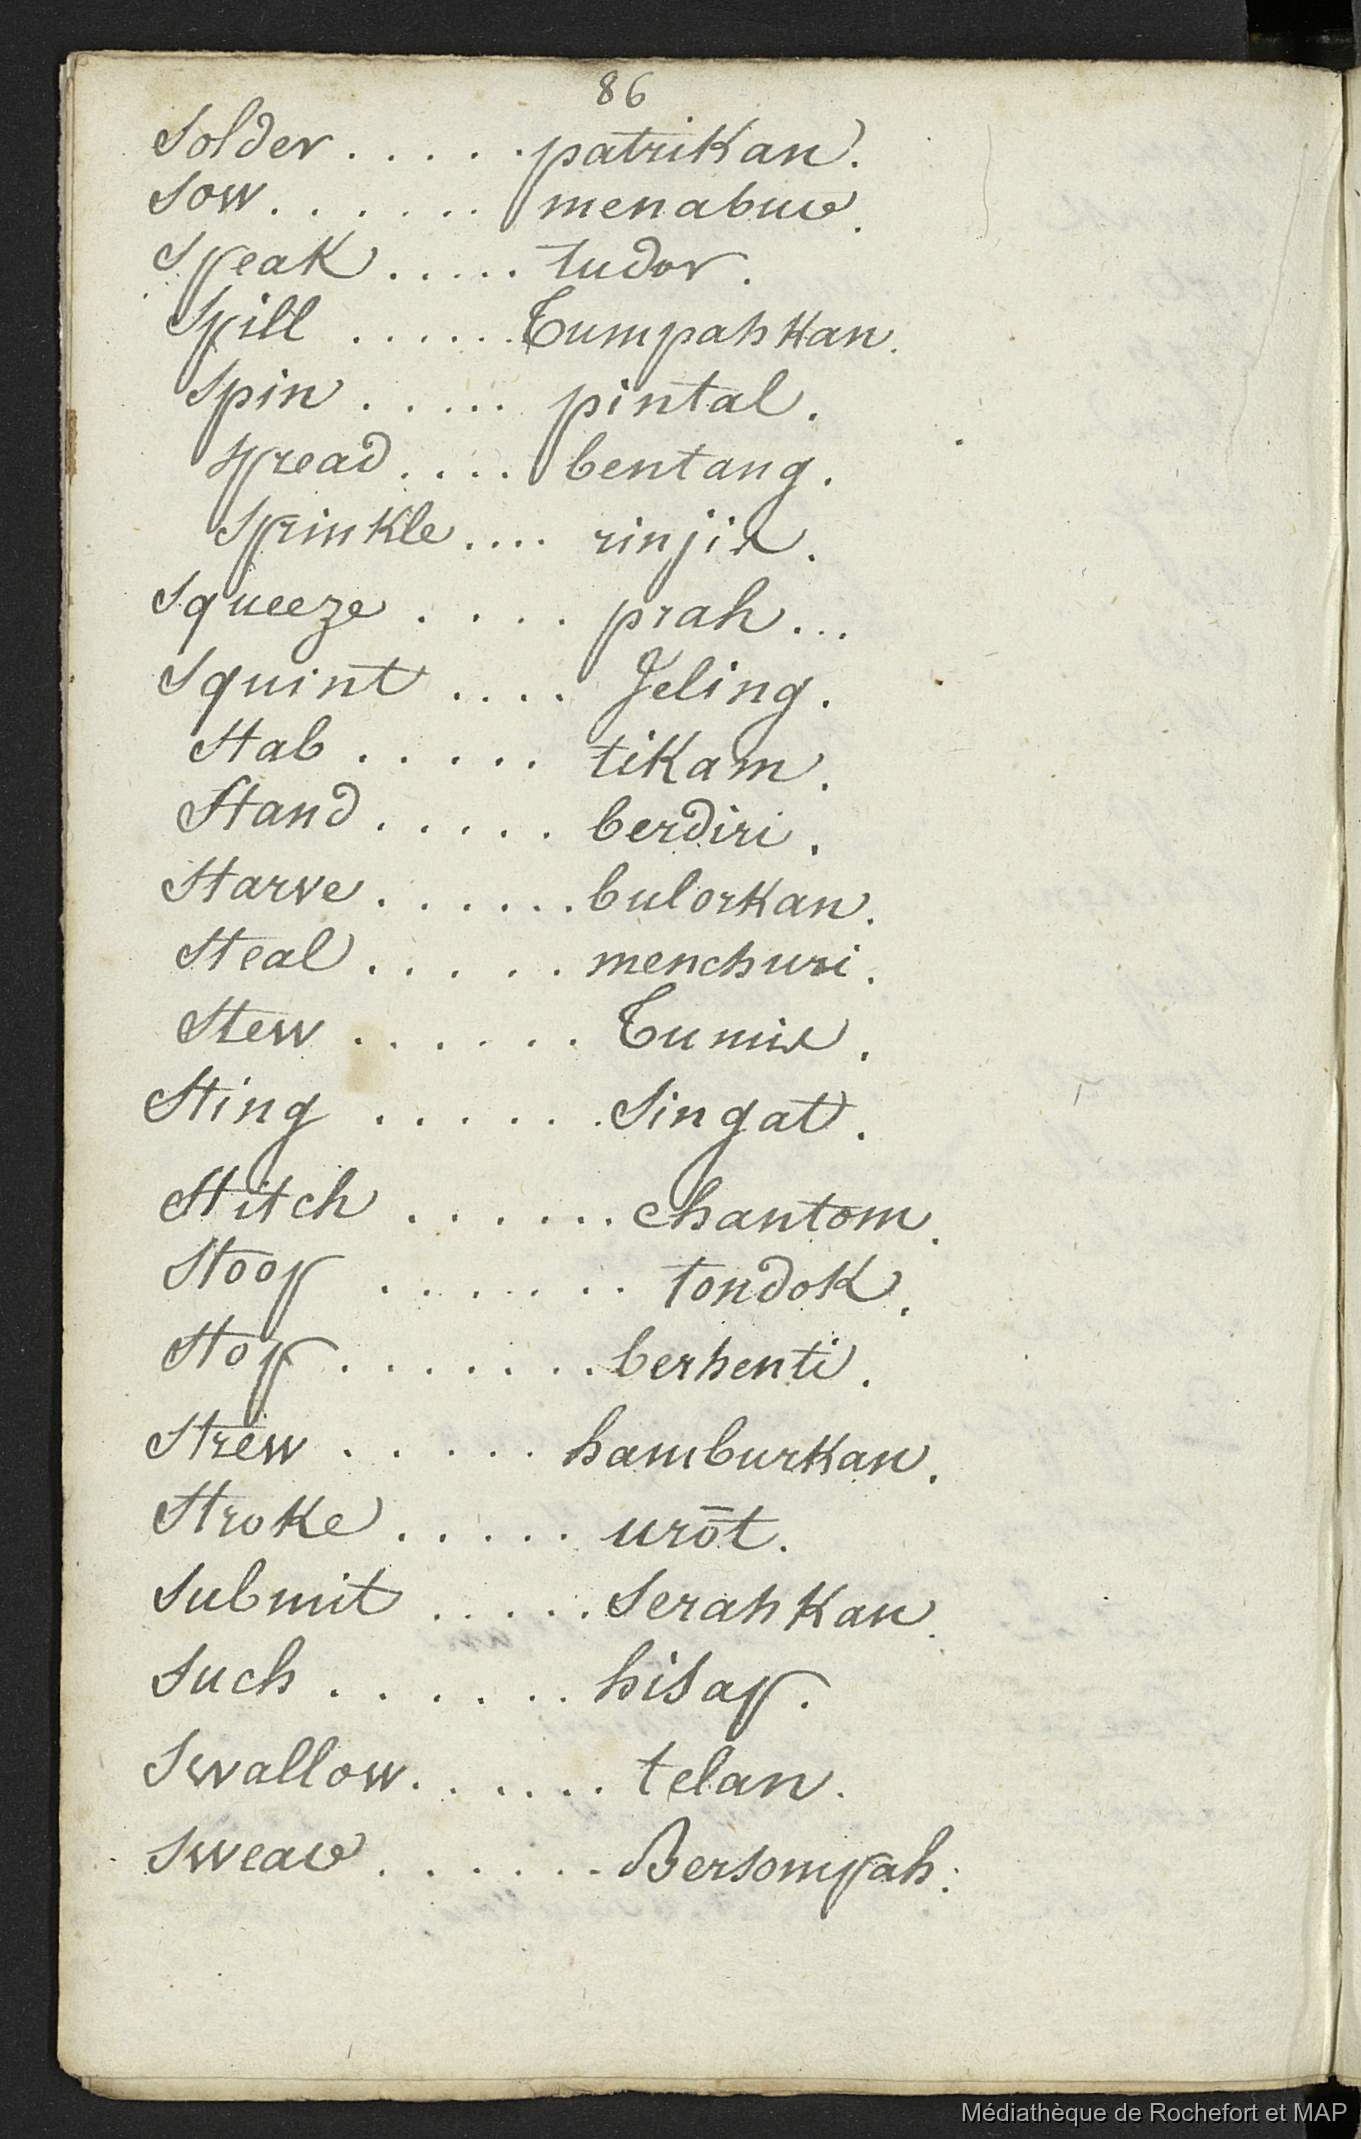 86
Solder ...... patriKan.
Sow ...... menabuw.
SpeaK ..... tudor.
Spill ...... TumpahKan.
Spin ..... pintal.
Spread .... bentang.
SprinKle .... rinjis.
Squeeze .... prah ...
Squint .... Jeling.
Stab ..... tiKam.
Stand ..... berdiri.
Starve ...... bulorKan.
Steal ..... menchuri.
Stew ...... Tumis.
Sting ...... Singat.
Stitch ...... chantom.
Stoop ....... tondoK.
Stop ....... berhenti.
Strew ..... hamburKan.
StroKe ..... urōt.
Submit ..... SerahKan.
Such ...... hisap.
Swallow ...... telan.
Sweaw ...... Bersompah.
Médiathèque de Rochefort et MAP